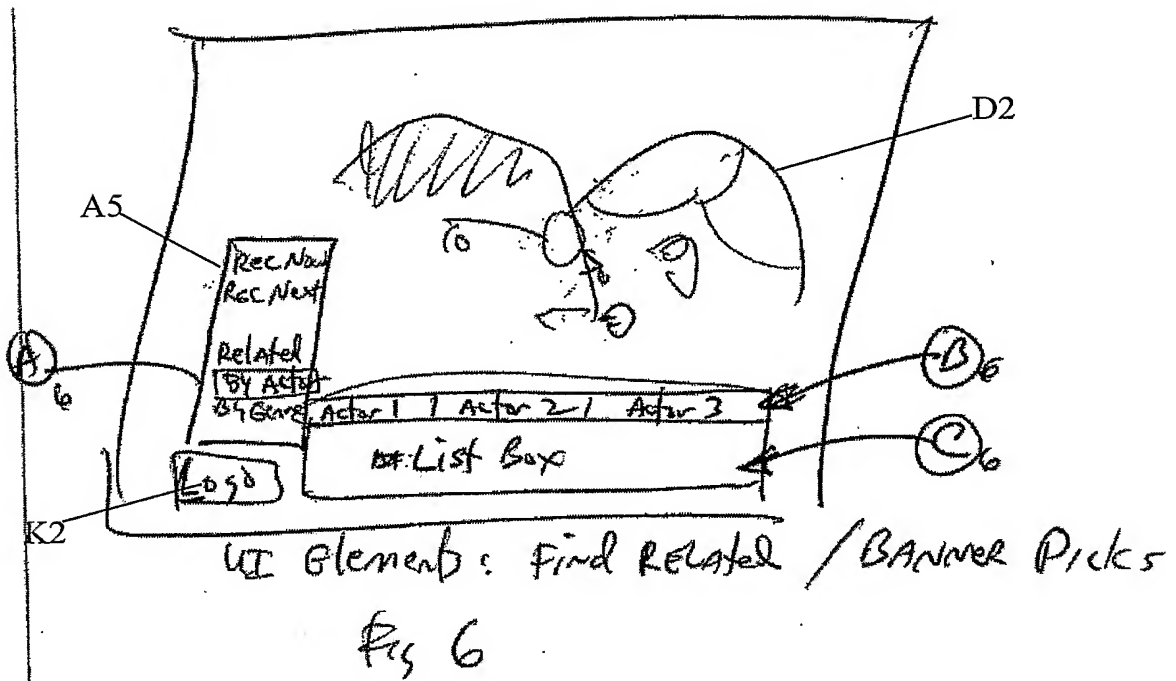 D2
A5
Rec Now
Rec Next
Related
By Actor
By Genre
Actor 1 | Actor 2 | Actor 3
List Box
Logo
A6
B6
C6
K2
UI Elements: Find Related / BANNER Picks
Fig 6